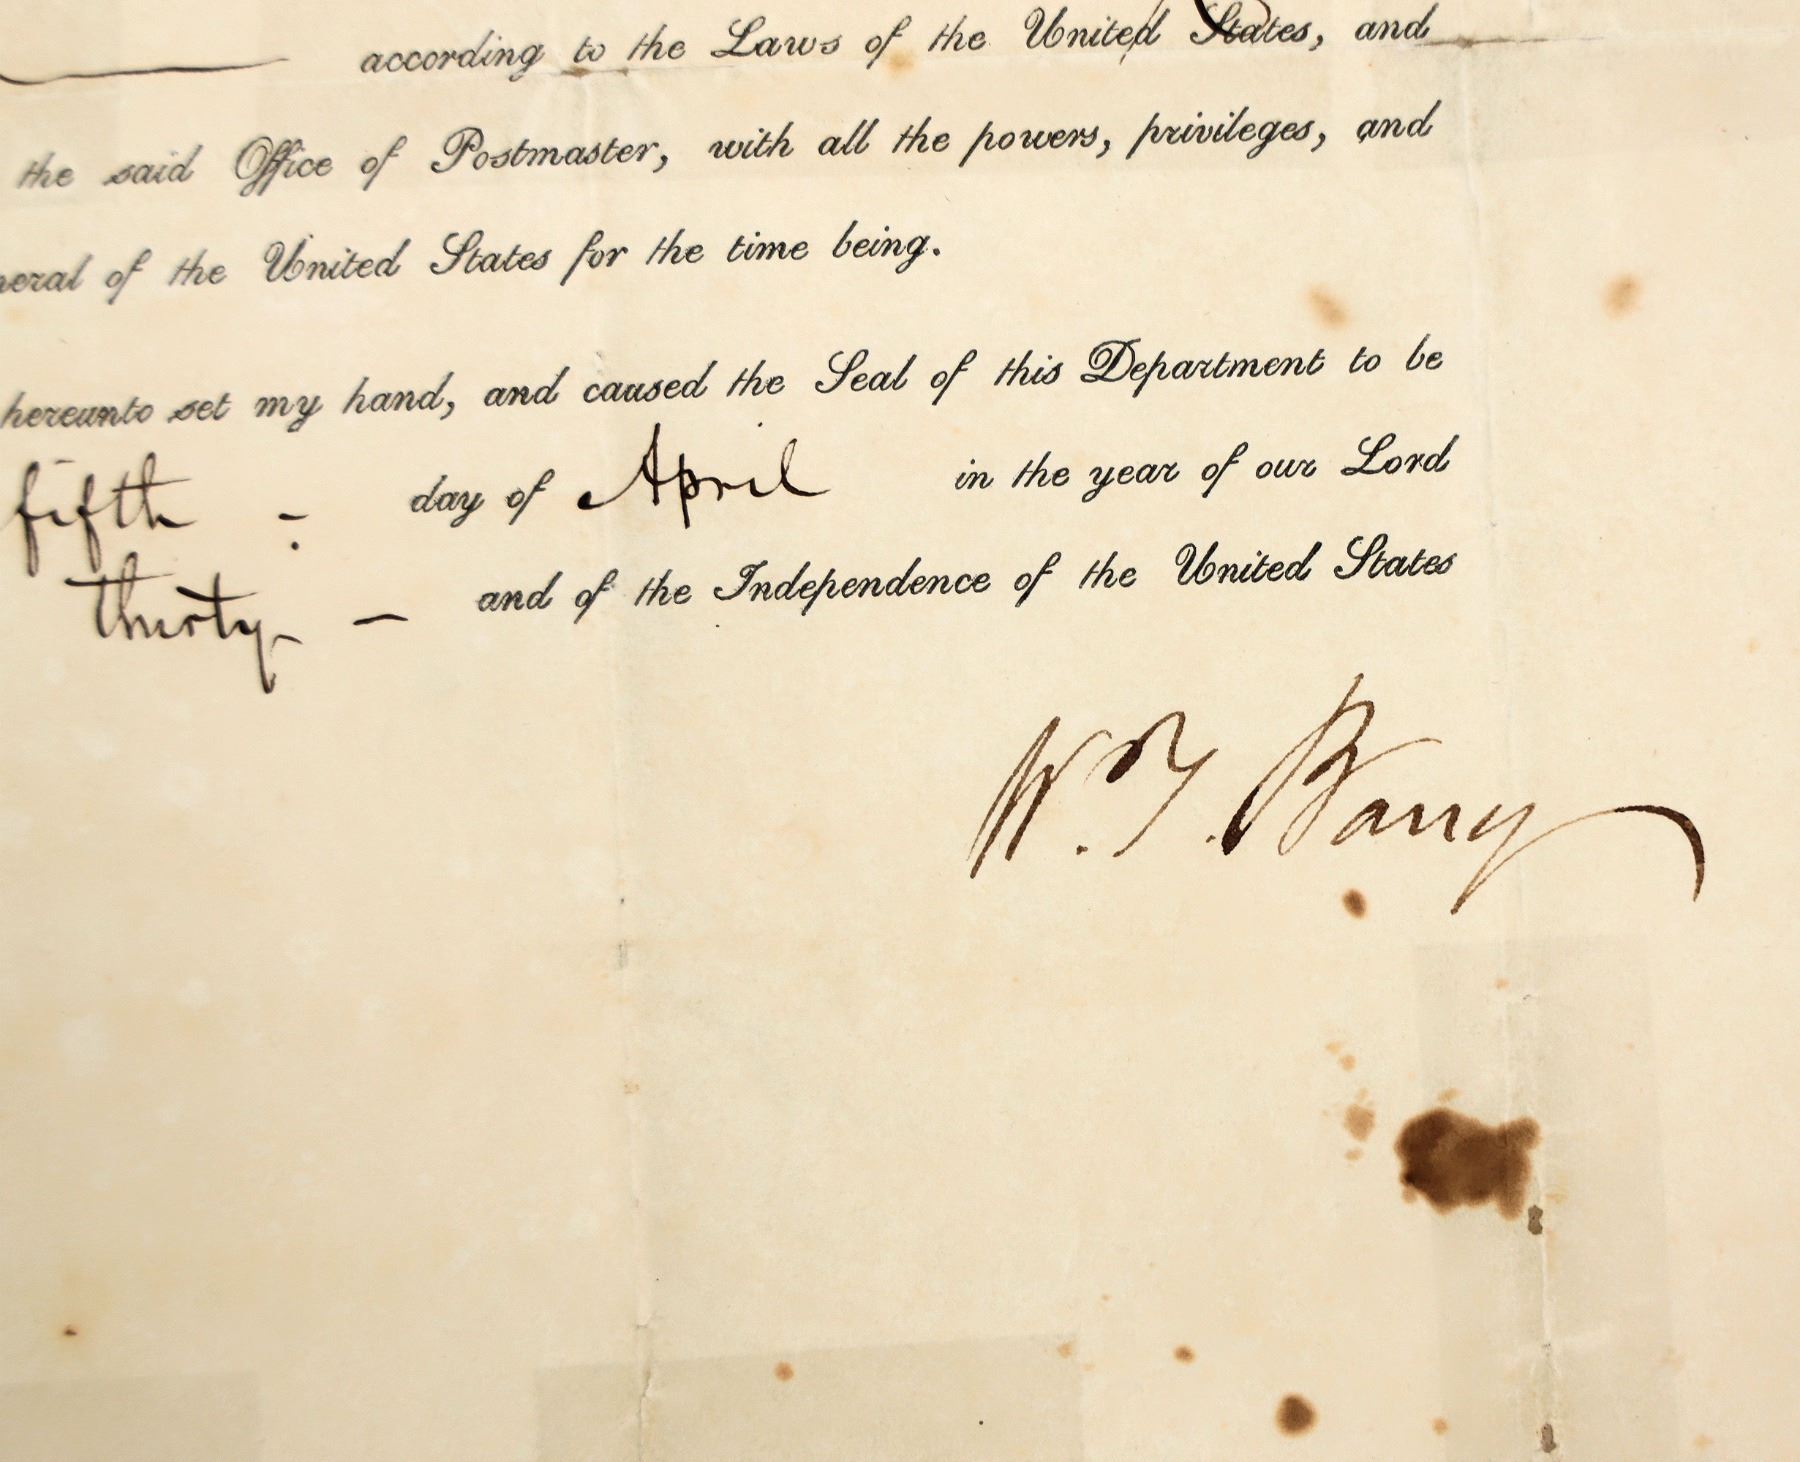 according to the Laws of the United States, and
the said Office of Postmaster, with all the powers, privileges, and
neral of the United States for the time being.
hereunto set my hand, and caused the Seal of this Department to be
fifth day of April in the year of our Lord
thirty — and of the Independence of the United States
Wm. T. Barry